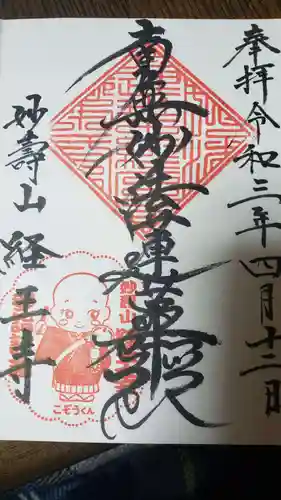 奉拝令和三年四月十二日
南無妙法蓮華経
妙壽山
経王寺
こぞうくん